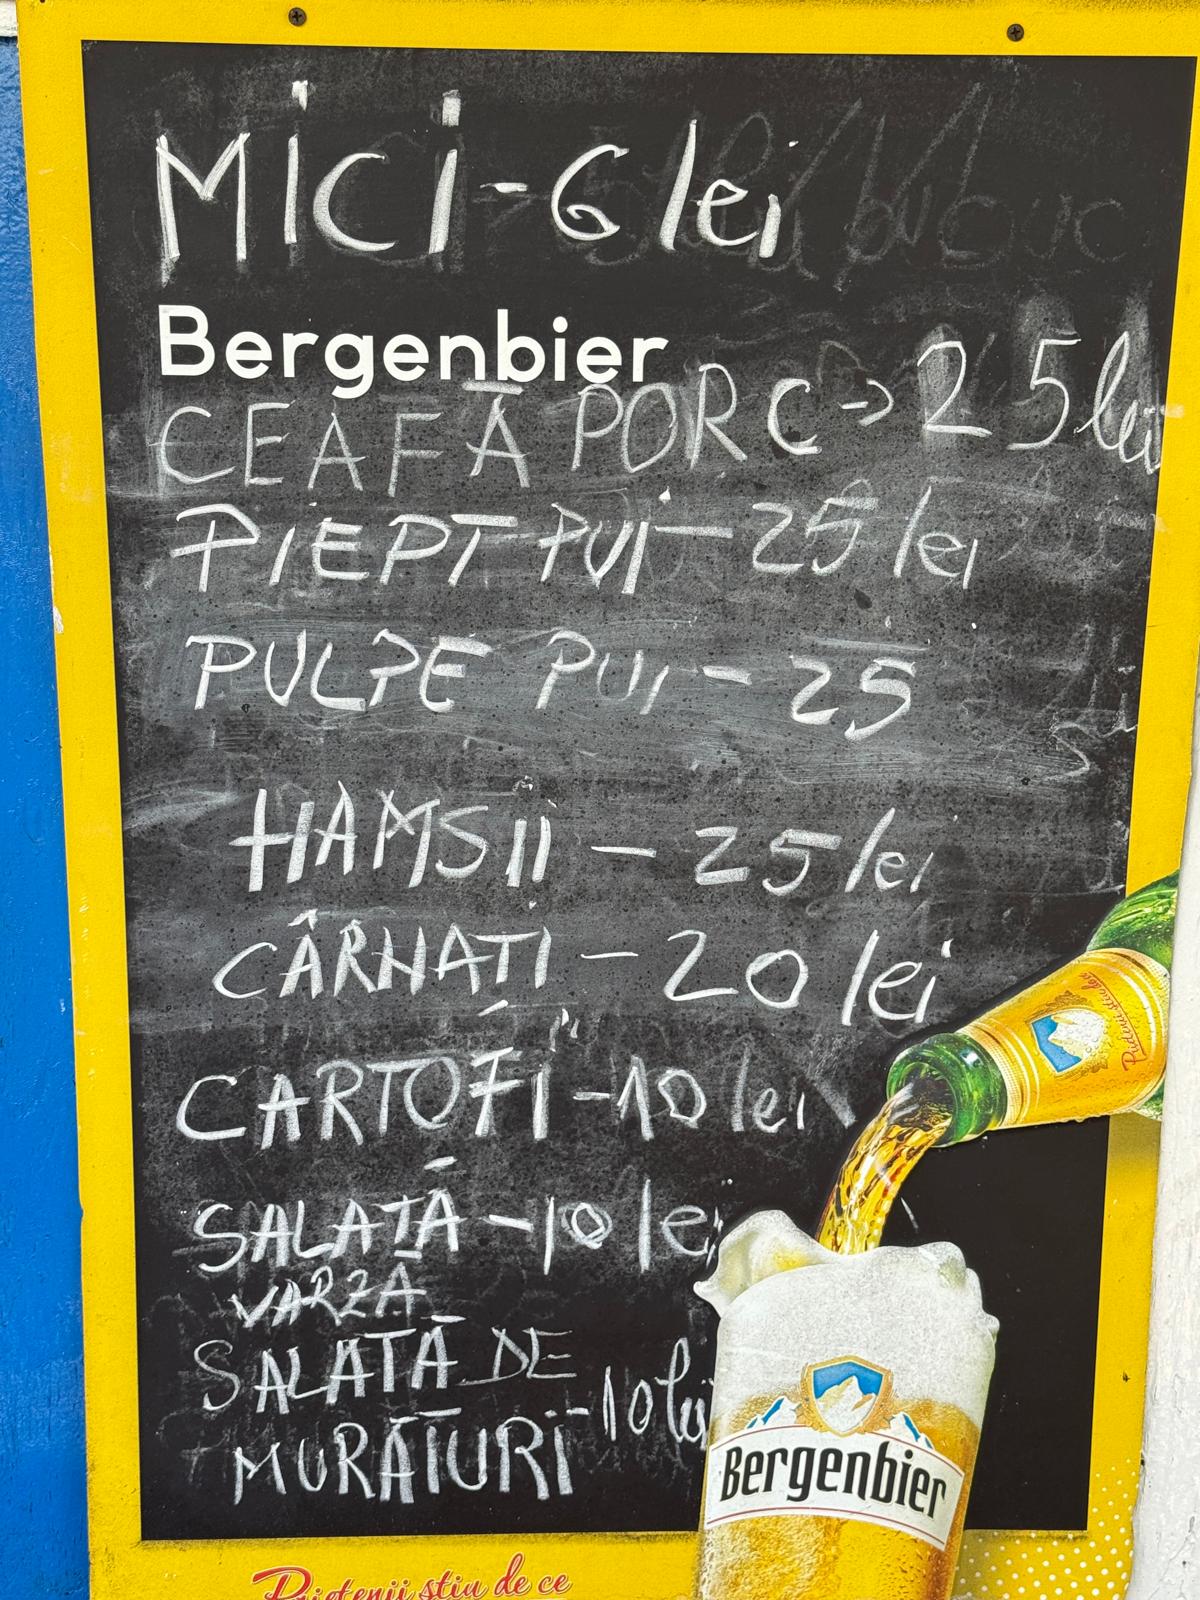 MICI - 6 lei
Bergenbier
CEAFĂ PORC -> 25 lei
PIEPT PUI - 25 lei
PULPE PUI - 25
HAMSII - 25 lei
CÂRNATI - 20 lei
CARTOFI - 10 lei
SALATĂ - 10 lei
VARZĂ
SALATĂ DE
MURĂTURI - 10 lei
Prietenii știu de ce
Bergenbier
Prietenii știu de ce